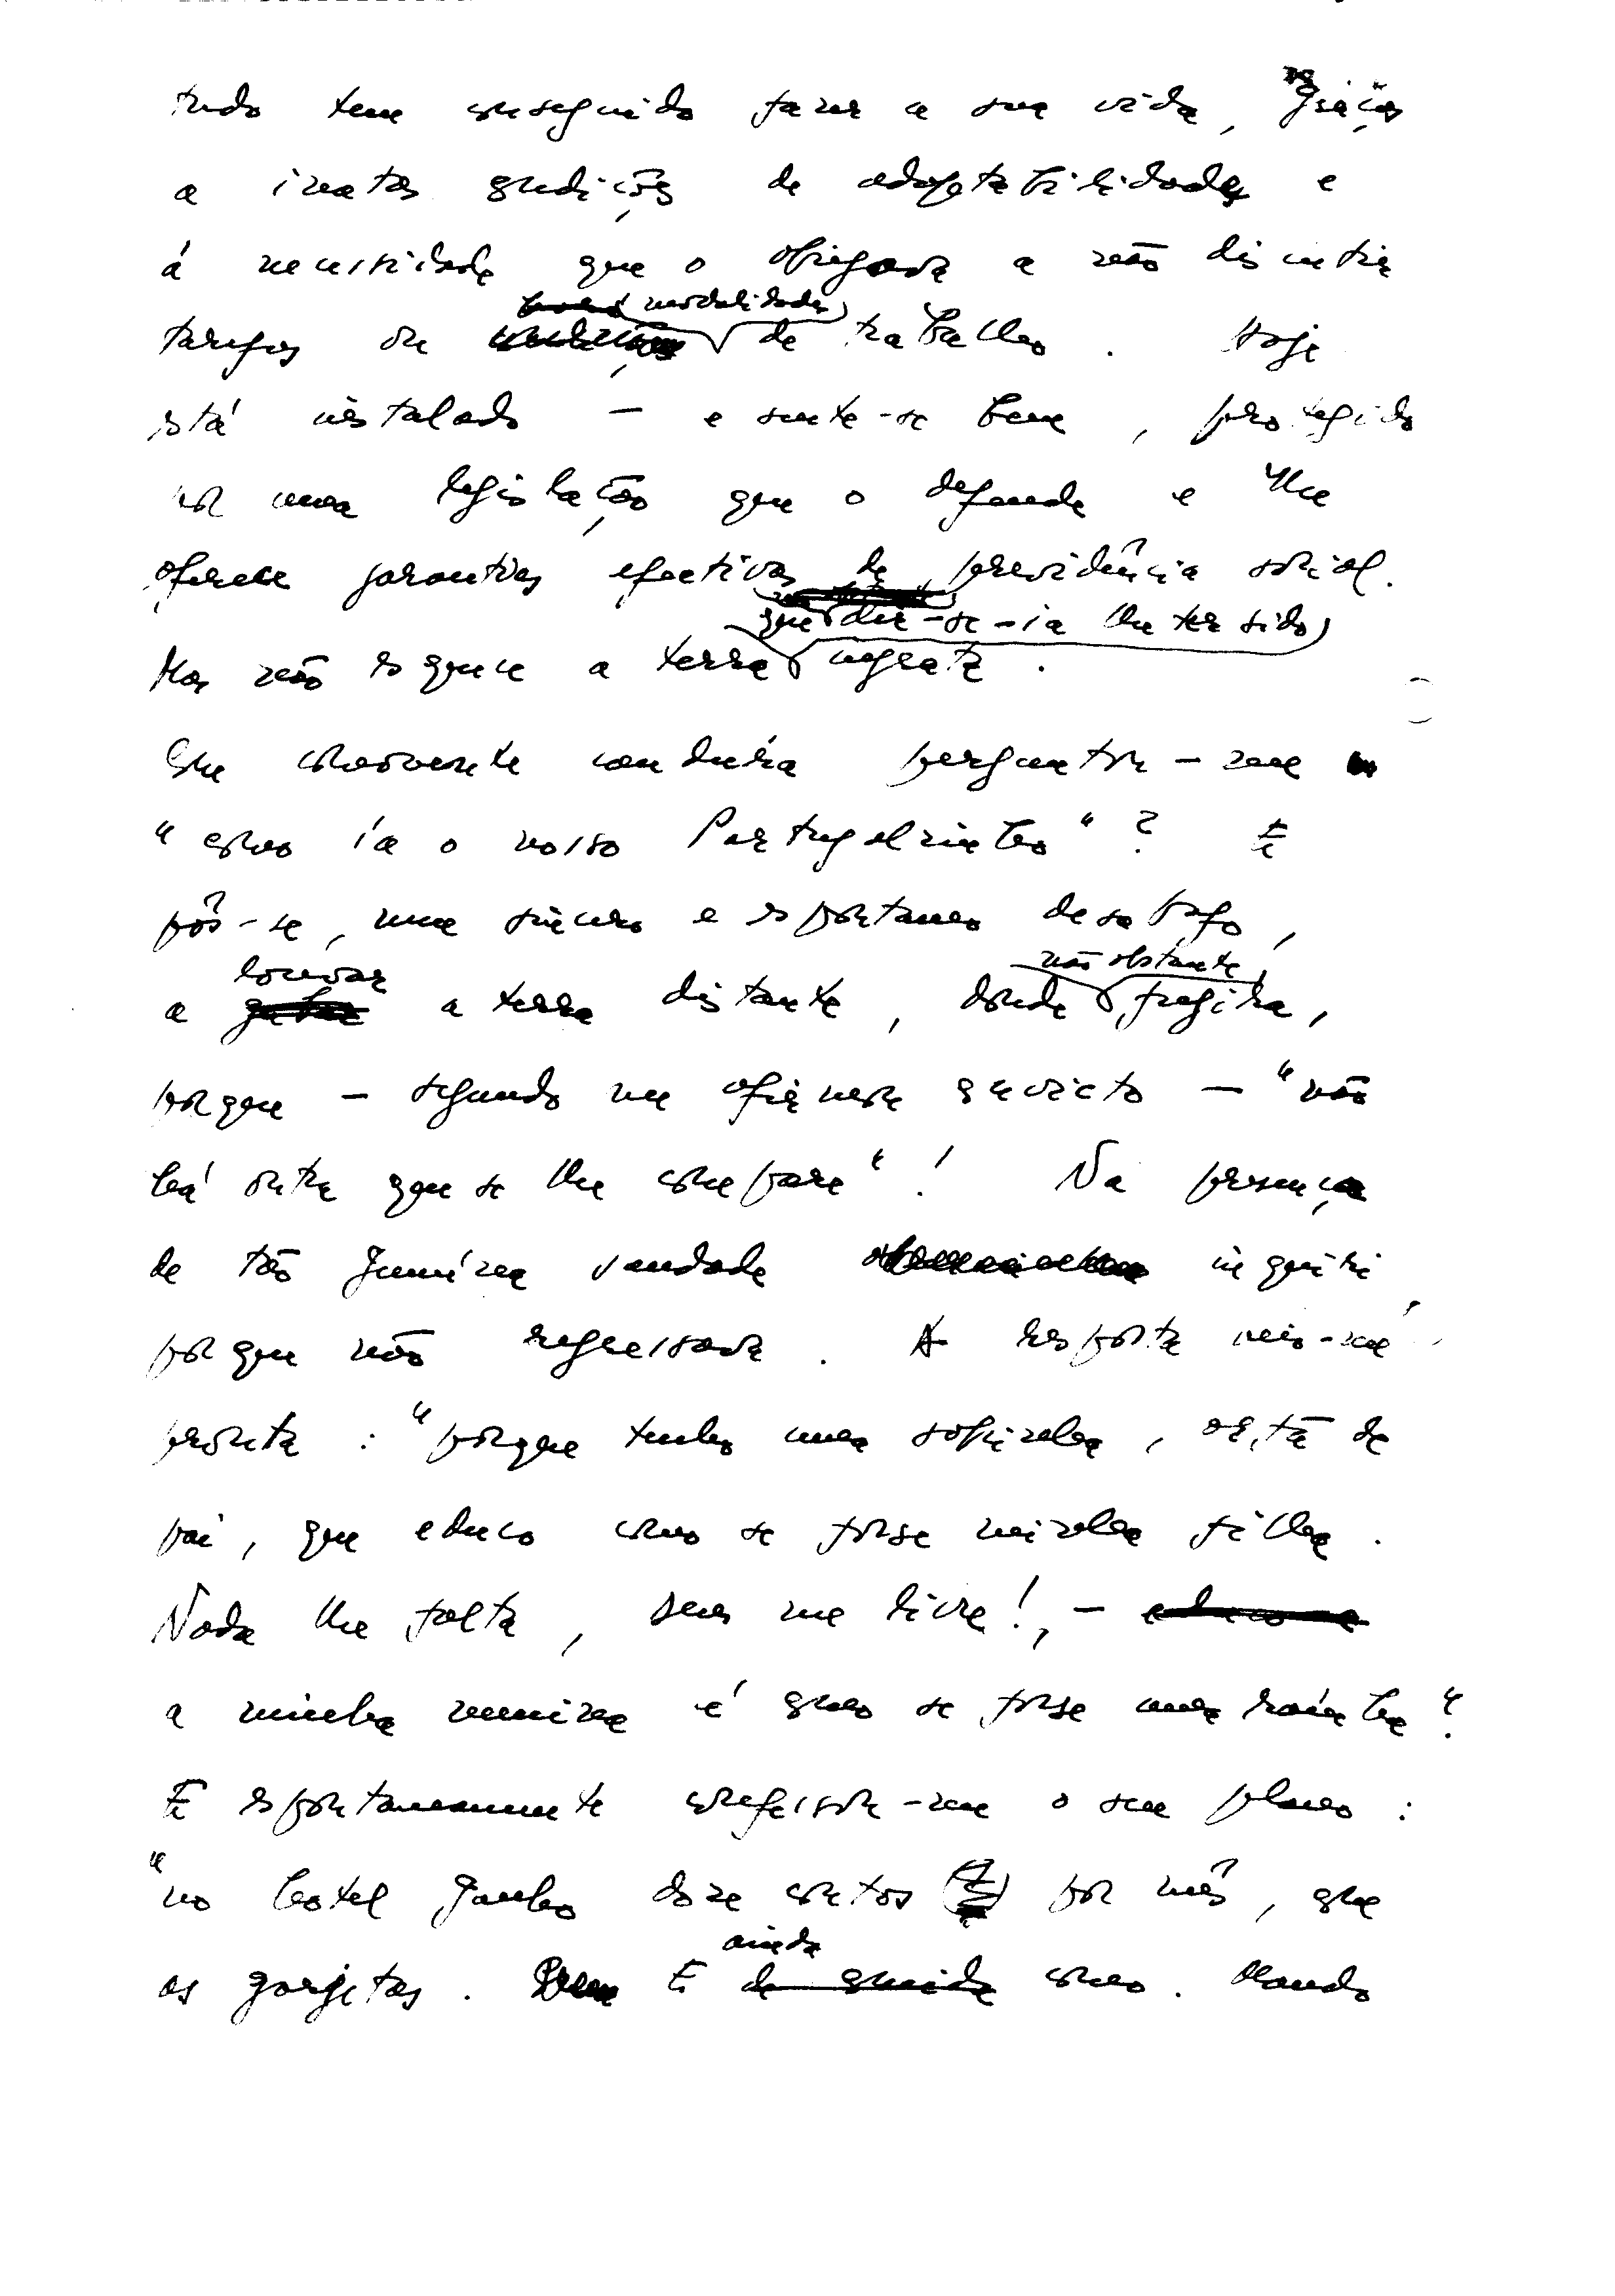 tudo tem conseguido fazer a sua vida, graças
a inatas condições de adaptabilidade e
á necessidade que o obrigava a não discutir
tarefas ou modalidades de trabalho. Hoje
está instalado — e sente-se bem, protegido
por uma legislação que o defende e lhe
oferece garantias efectivas de previdência social.
Mas não esquece a terra que dir-se-ia lhe ter sido ingrata.
Com comovente candura perguntou-me
"como ia o nosso Portugalzinho"? E
pôs-se, num sincero e espontaneo desabafo,
a louvar a terra distante, donde não obstante fugira,
porque — segundo me afirmou convicto — "não
há outra que se lhe compare"! Na presença
de tão genuína saudade inquiri
porque não regressava. A resposta veio-me
pronta: "porque tenho uma sobrinha, orfã de
pai, que educo como se fosse minha filha.
Nada lhe falta, Deus me livre!, —
a minha menina é como se fosse uma rainha"
E espontaneamente confessou-me o seu plano:
"no hotel ganho doze contos por mês, com
as gorjetas. E ainda como. Mando